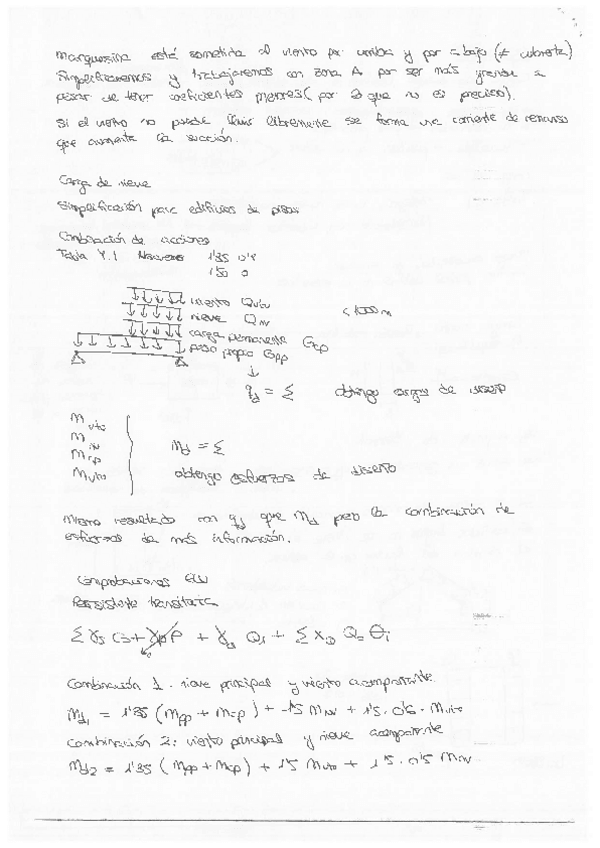 marquesina está sometida al viento por arriba y por abajo (≠ cubierta)
Simplificaremos y trabajaremos con zona A por ser más grande a
pesar de tener coeficientes menores (por lo que no es preciso).
Si el viento no puede fluir libremente se forma una corriente de remanso
que aumenta la succión.
Carga de nieve
Simplificación para edificios de pisos
Combinación de acciones
Tabla 4.1 1'35 0'8
1'50 0
viento Qvto
nieve Qnv < 1000 m
carga permanente Gcp
peso propio Gpp
↓
qd = Σ obtengo cargas de diseño
Mvto
Mnv
Mcp Md = Σ
Mvto obtengo esfuerzos de diseño
Mismo resultado con qd que Md pero la combinación de
esfuerzos da más información.
Comprobaciones ELU
Persistente transitoria
Combinación 1. nieve principal y viento acompañante.
Md1 = 1'35 (Mpp + Mcp) + 1'5 Mnv + 1'5 · 0'6 · Mvto
Combinación 2: viento principal y nieve acompañante
Md2 = 1'35 (Mpp + Mcp) + 1'5 Mvto + 1'5 · 0'5 Mnv